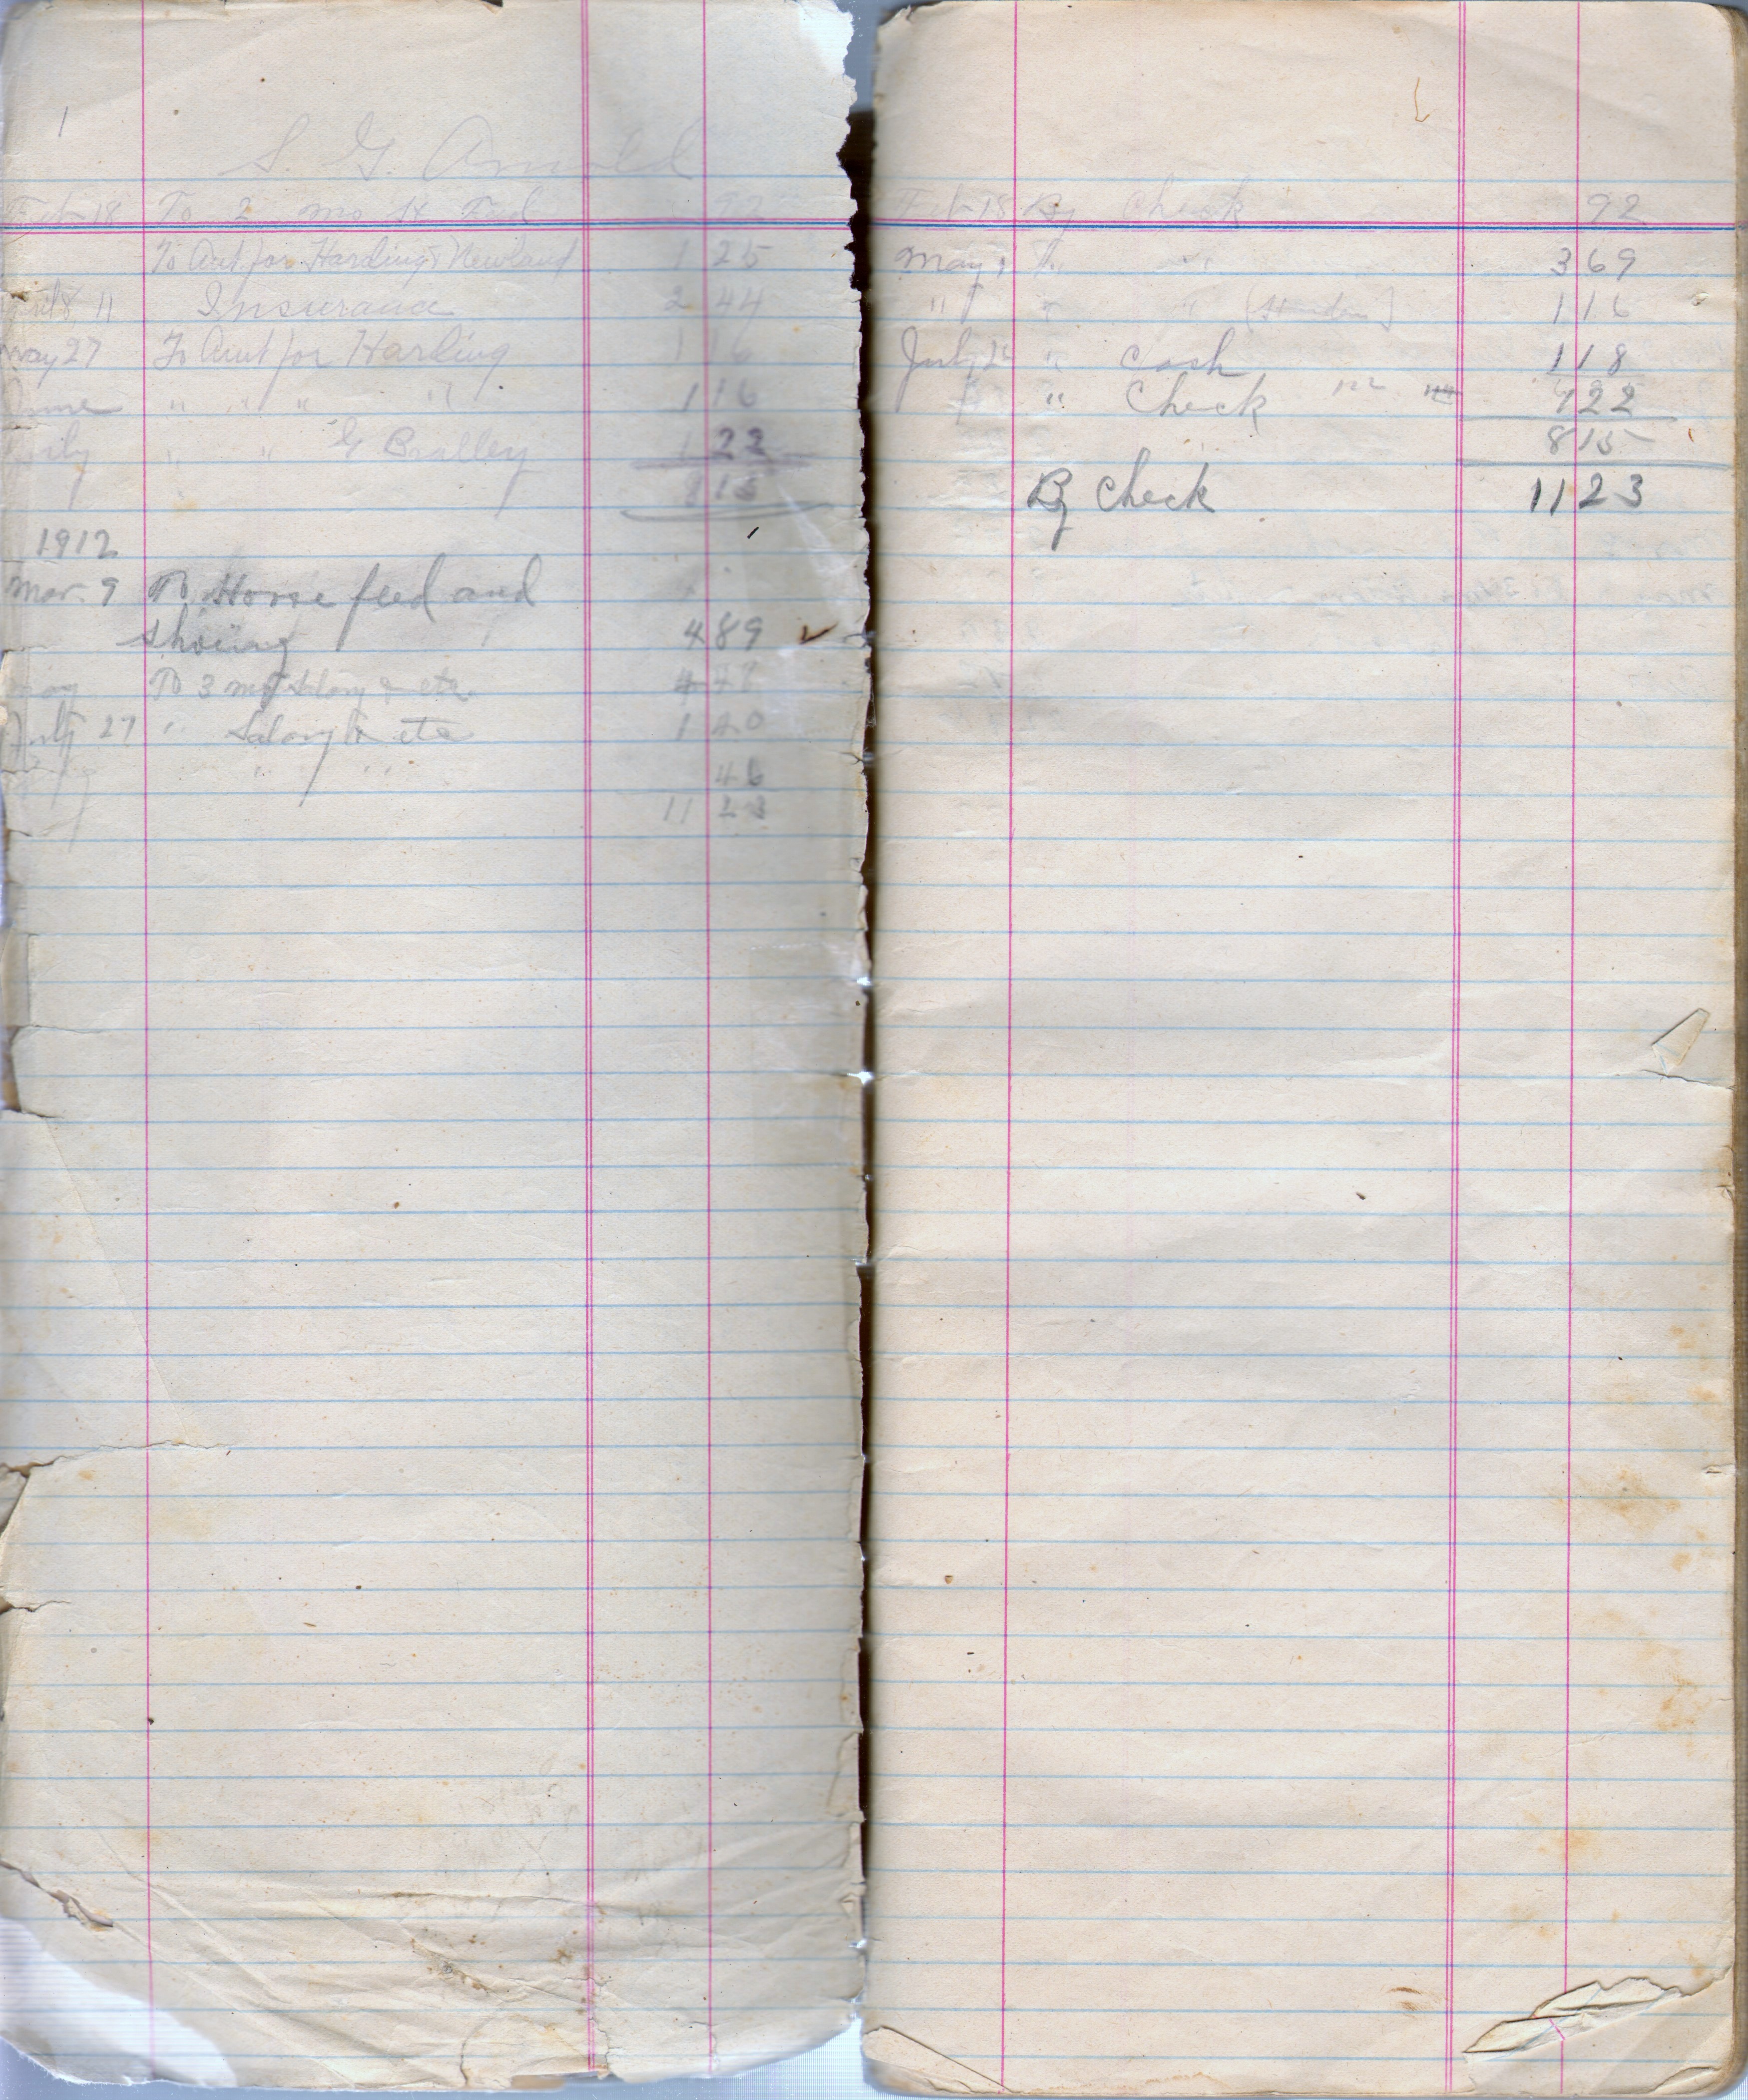 1
S. G. Arnold
Feb 18 To 2 mo H Feed 92
To Amt for Harding & Newland 1 25
11 Insurance 2 44
May 27 To Amt for Harding 1 16
June " " " " 1 16
July " " G Bralley 1 22
8 15
1912
Mar. 9 To Horse feed and
shoeing 4 89
May To 3 mo Salary & etc
July 27 " Salary & etc 1 40
" " 46
11 23
Feb 18 By Check 92
May 3 69
" 1 16
July Cash 1 18
" Check 1 22
8 15
By Check 11 23